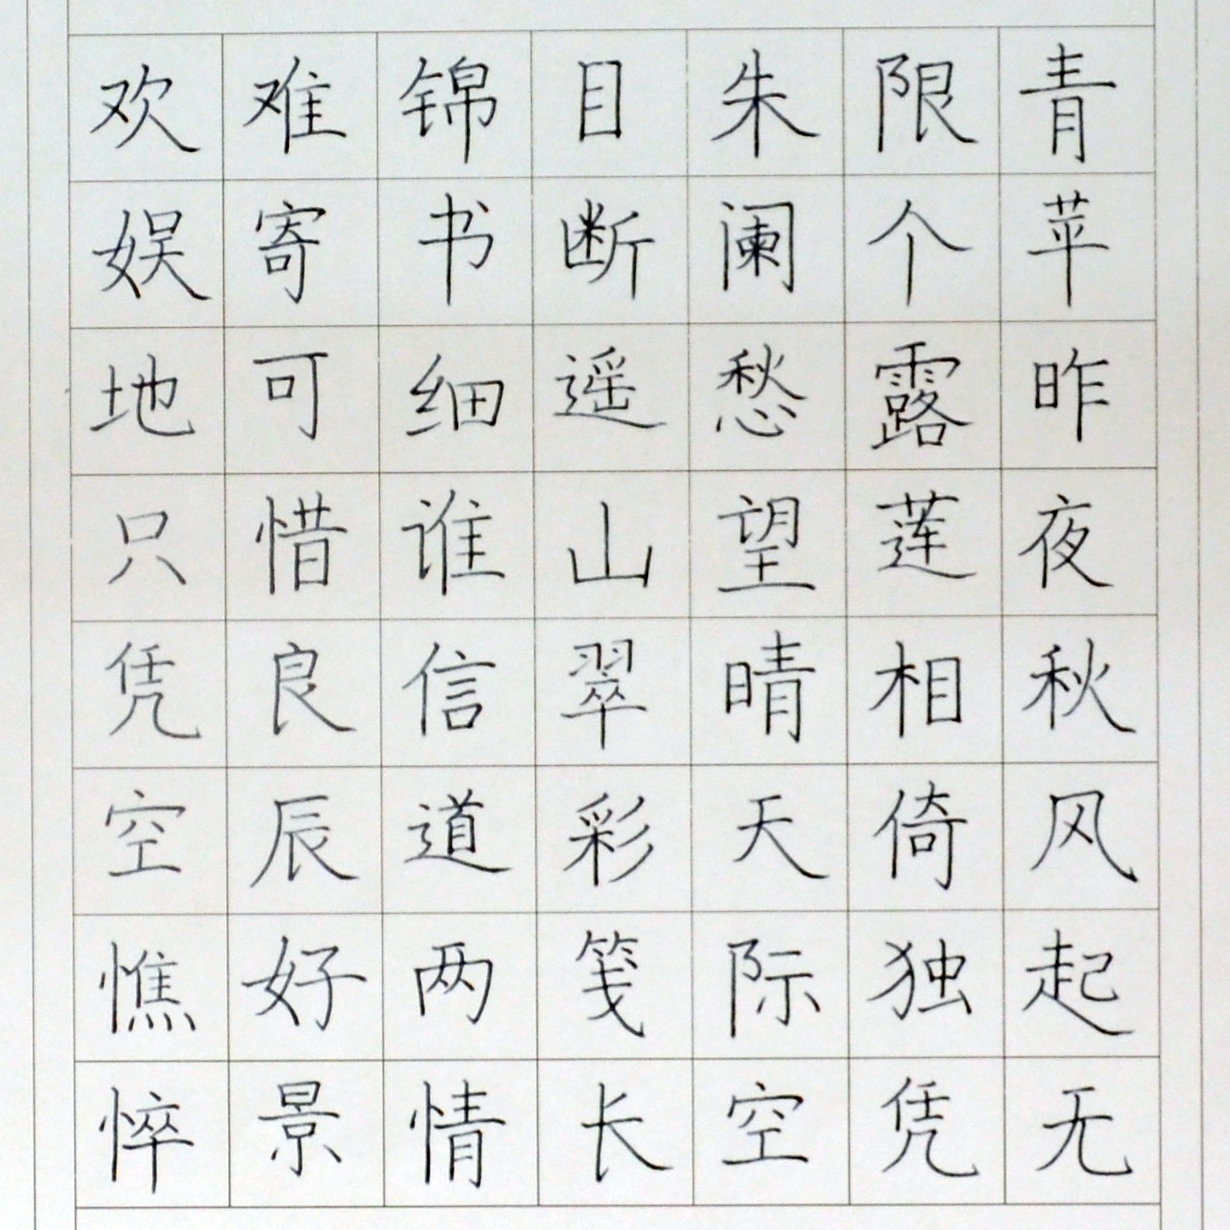 青苹昨夜秋风起无
限个露莲相倚独凭
朱阑愁望晴天际空
目断遥山翠彩笺长
锦书细谁信道两情
难寄可惜良辰好景
欢娱地只凭空憔悴